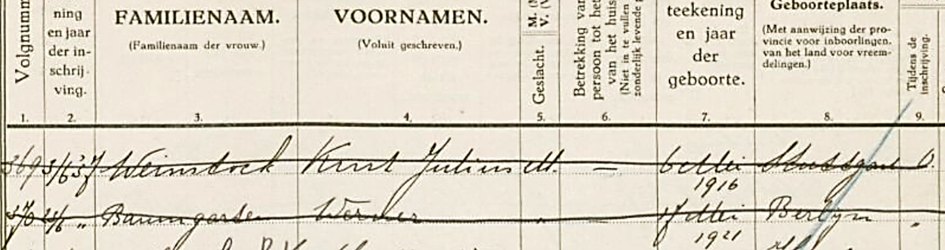 Volgnumm
ning en jaar der in- schrij- ving.
FAMILIENAAM.
(Familienaam der vrouw.)
VOORNAMEN.
(Voluit geschreven.)
Geslacht. M. (M V. (V
Betrekking van persoon tot het van het huis (Niet in te vullen zonderlijk levende p
teekening en jaar der geboorte.
Geboorteplaats.
(Met aanwijzing der pro- vincie voor inboorlingen, van het land voor vreem- delingen.)
Tijdens de inschrijving.
1. 2. 3. 4. 5. 6. 7. 8. 9.
369 3/6 37 Weinstock Kurt Julius M. — 6 Mei 1916 Stuttgart
370 " Baumgarten Werner " 17 Mei 1921 Berlyn "